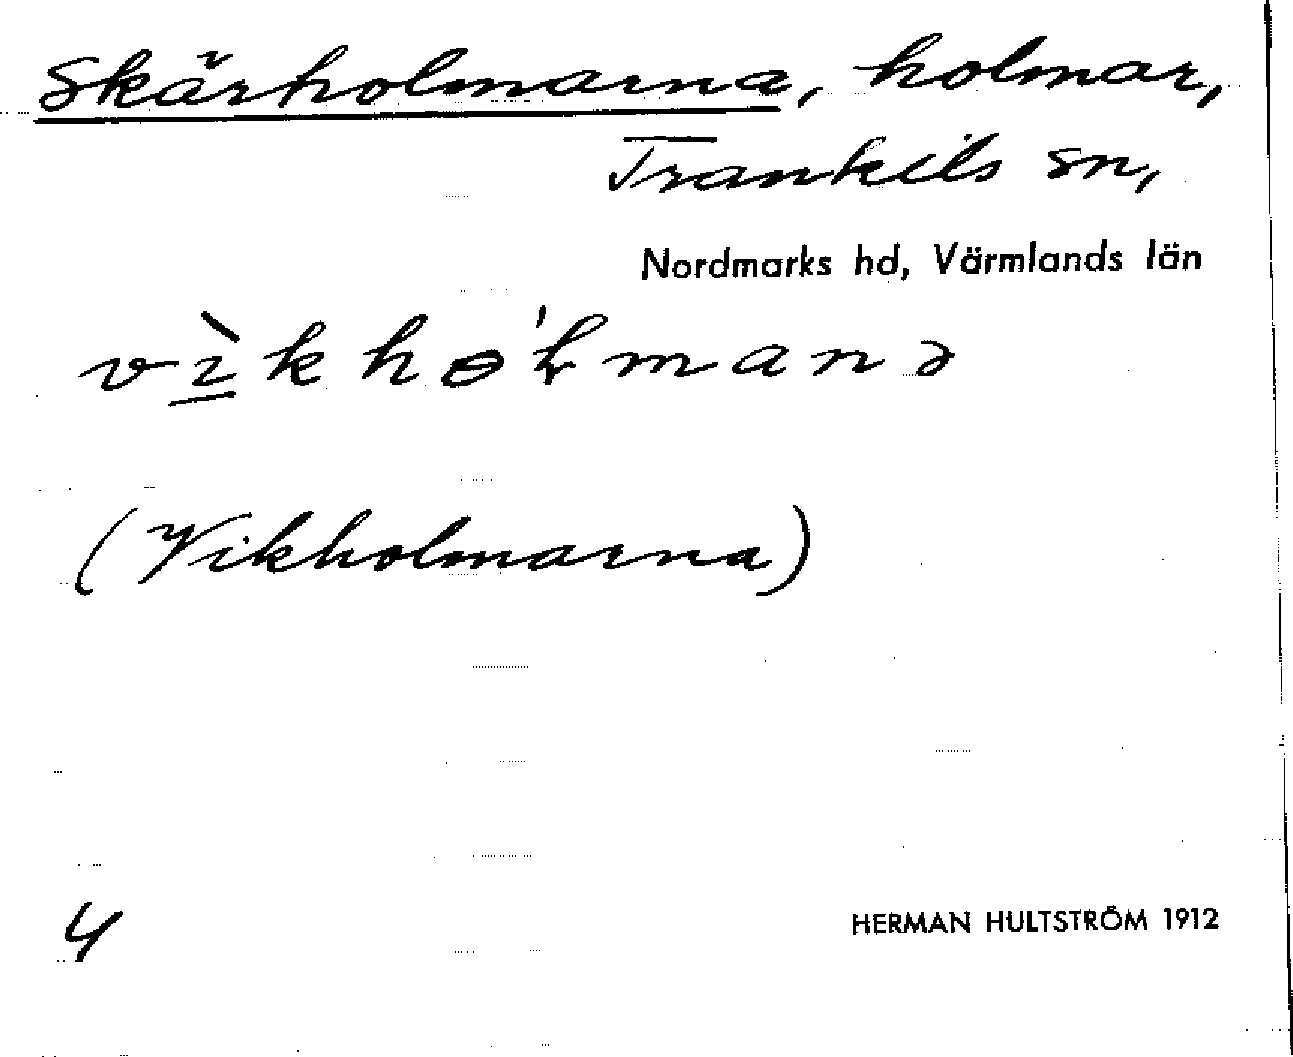 Skärholmarna, holmar,
Trankils sn,
Nordmarks hd, Värmlands län
vìkhɵ'ɫmanə
(Vikholmarna)
4
HERMAN HULTSTRÖM 1912